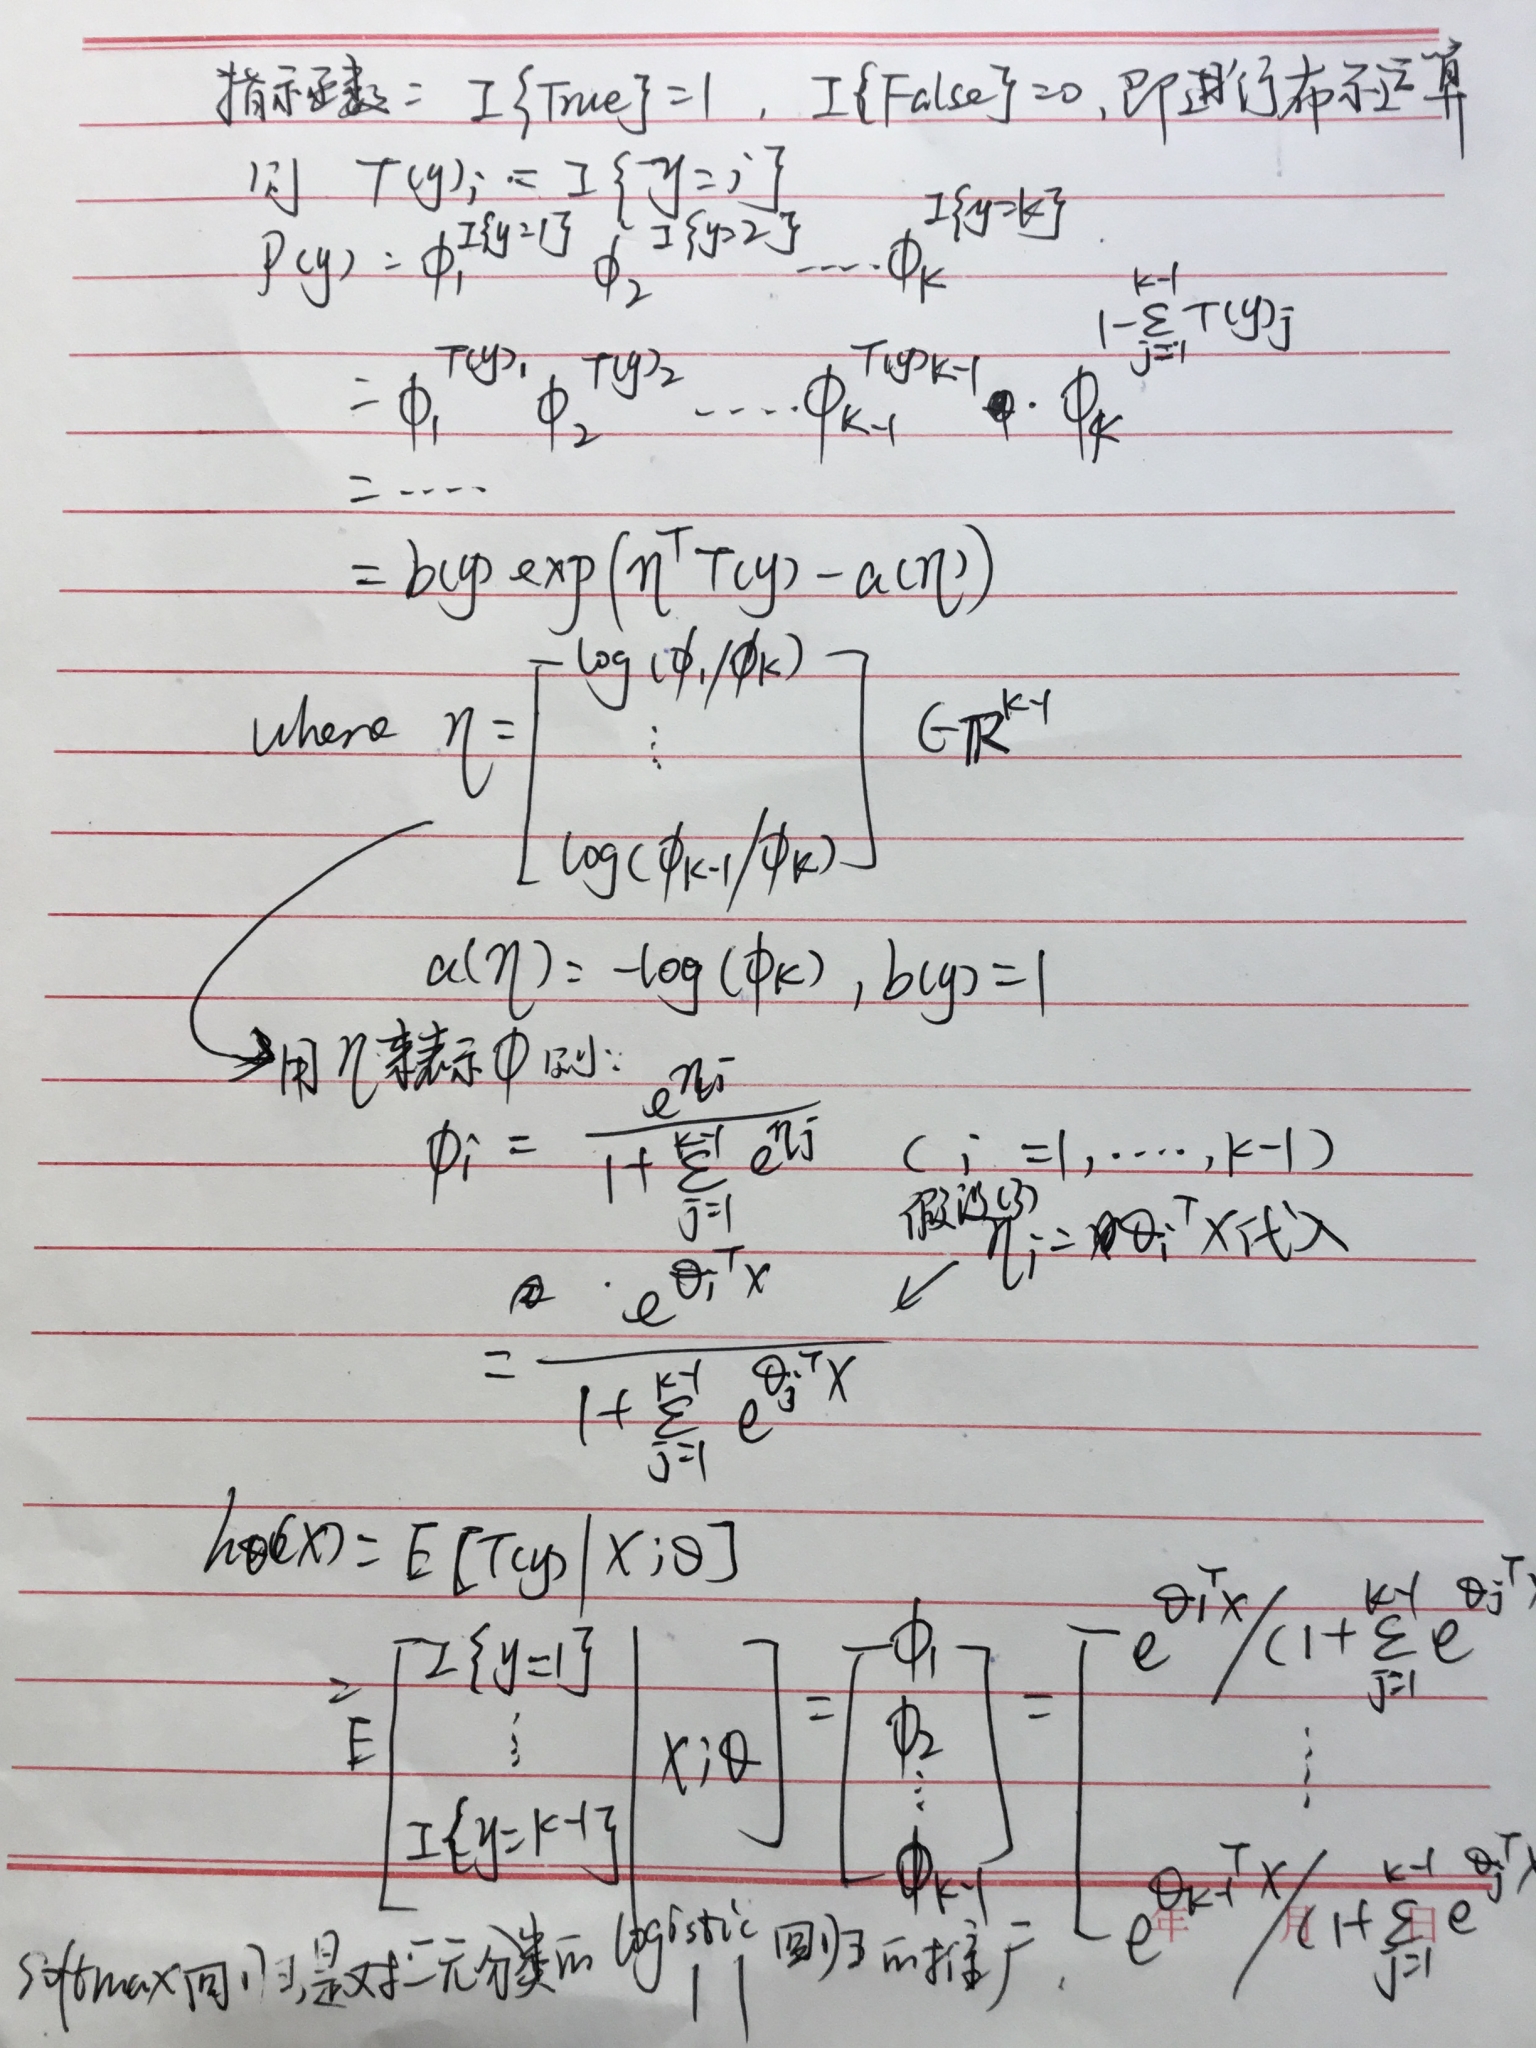 指示函数: I{True}=1, I{False}=0, 即进行布尔运算
则 T(y)ᵢ = I{y=i}
P(y) = ϕ₁^{I{y=1}} ϕ₂^{I{y=2}} ····· ϕ_k^{I{y=k}}
= ϕ₁^{T(y)₁} ϕ₂^{T(y)₂} ····· ϕ_{k-1}^{T(y)_{k-1}} · ϕ_k^{1-∑_{j=1}^{k-1} T(y)_j}
= ·····
= b(y) exp(η^T T(y) - a(η))
where η = [log(ϕ₁/ϕ_k) ⋮ log(ϕ_{k-1}/ϕ_k)] ∈ ℝ^{k-1}
a(η) = -log(ϕ_k), b(y) = 1
用η来表示ϕ则:
ϕᵢ = e^{ηᵢ} / (1+∑_{j=1}^{k-1} e^{η_j}) (i =1,·····,k-1)
假设(3) ηᵢ = θᵢ^T X代入
= e^{θᵢ^T X} / (1+∑_{j=1}^{k-1} e^{θ_j^T X})
h_θ(X) = E[T(y)|X;θ]
= E[I{y=1} ⋮ I{y=k-1} | X;θ] = [ϕ₁ ϕ₂ ⋮ ϕ_{k-1}] = [e^{θ₁^T X}/(1+∑_{j=1}^{k-1} e^{θ_j^T X ⋮ e^{θ_{k-1}^T X}/(1+∑_{j=1}^{k-1} e^{θ_j^T X
年 月 日
Softmax回归是对二元分类的logistic回归的推广.